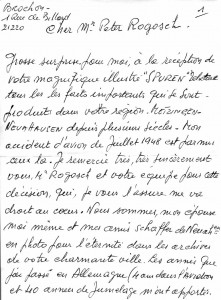 Brochon 1
1 Rue de Billard
21220 Cher Mr Peter Rogosch
Grosse surprise pour moi, à la réception de
votre magnifique illustré "SPUREN"
tous les faits importants qui se sont
produits dans votre région. METZINGEN
NEUHAUSEN depuis plusieurs siècles. Mon
accident d'avion de Juillet 1948 est parmi
eux tous. Je remercie très, très sincèrement
vous, Mr Rogosch et votre équipe pour cette
décision, qui, je vous l'assure me va
droit au cœur. Nous sommes, mon épouse
moi même et mes amis Schaffer de
en photo pour l'éternité dans les archives
de votre charmante ville. Les années que
j'ai passé en Allemagne (4 ans dans l'aviation
et 40 années de Jumelage m'ont apportés